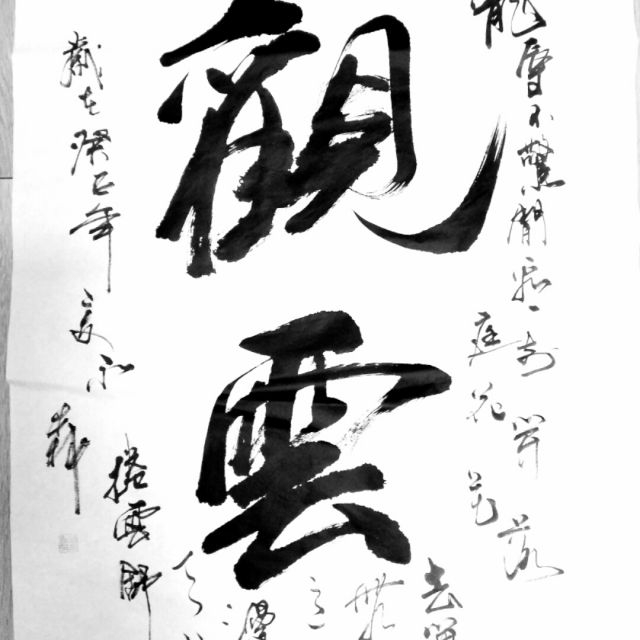 觀雲
寵辱不驚閒看庭前花開花落
去留
無
意
漫
天外
捲雲舒
歲在癸巳年夏